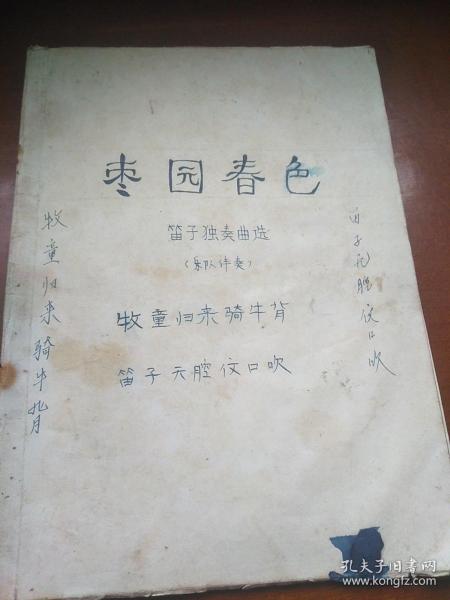 枣园春色
笛子独奏曲选
(乐队伴奏)
牧童归来骑牛背
笛子无腔仅口吹
牧童归来骑牛背
笛子无腔仅口吹
孔夫子旧书网
www.kongfz.com